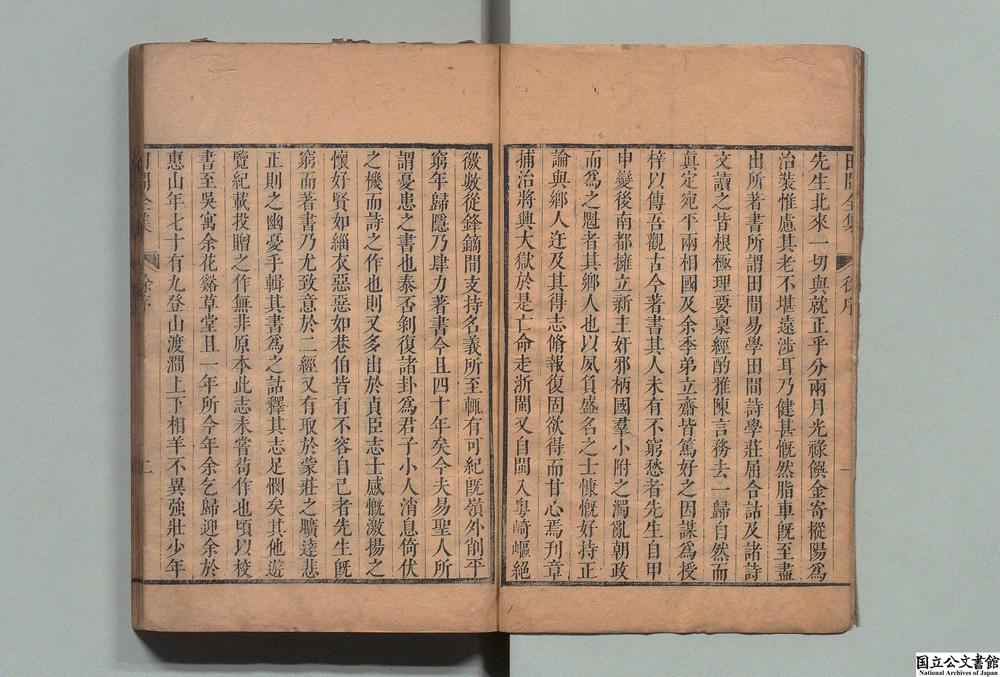 田間全集
徐序
一
先生北來一切與就正乎分兩月光祿饌金寄樅陽爲
治裝惟慮其老不堪遠涉耳乃健甚慨然脂車旣至盡
出所著書所謂田間易學田間詩學莊屈合詁及諸詩
文讀之皆根極理要稟經酌雅陳言務去一歸自然而
眞定宛平兩相國及余季弟立齋皆篤好之因謀爲授
梓以傳吾觀古今著書其人未有不窮愁者先生自甲
申變後南都擁立新主奸邪柄國羣小附之濁亂朝政
而爲之魁者其鄉人也以夙負盛名之士慷慨好持正
論與鄉人迕及其得志脩報復固欲得而甘心焉刊章
捕治將興大獄於是亡命走浙閩又自閩入粵崎嶇絕
徼數從鋒鏑間支持名義所至輒有可紀旣嶺外削平
窮年歸隱乃肆力著書今且四十年矣今夫易聖人所
謂憂患之書也泰否剝復諸卦爲君子小人消息倚伏
之機而詩之作也則又多出於貞臣志士感慨激揚之
懷好賢如緇衣惡惡如巷伯皆有不容自己者先生旣
窮而著書乃尤致意於二經又有取於蒙莊之曠達悲
正則之幽憂手輯其書爲之詁釋其志足憫矣其他遊
覽紀載投贈之作無非原本此志未嘗苟作也頃以校
書至吳寓余花谿草堂且一年所今年余乞歸迎余於
惠山年七十有九登山渡澗上下相羊不異強壯少年
田間全集
徐序
二
国立公文書館
National Archives of Japan